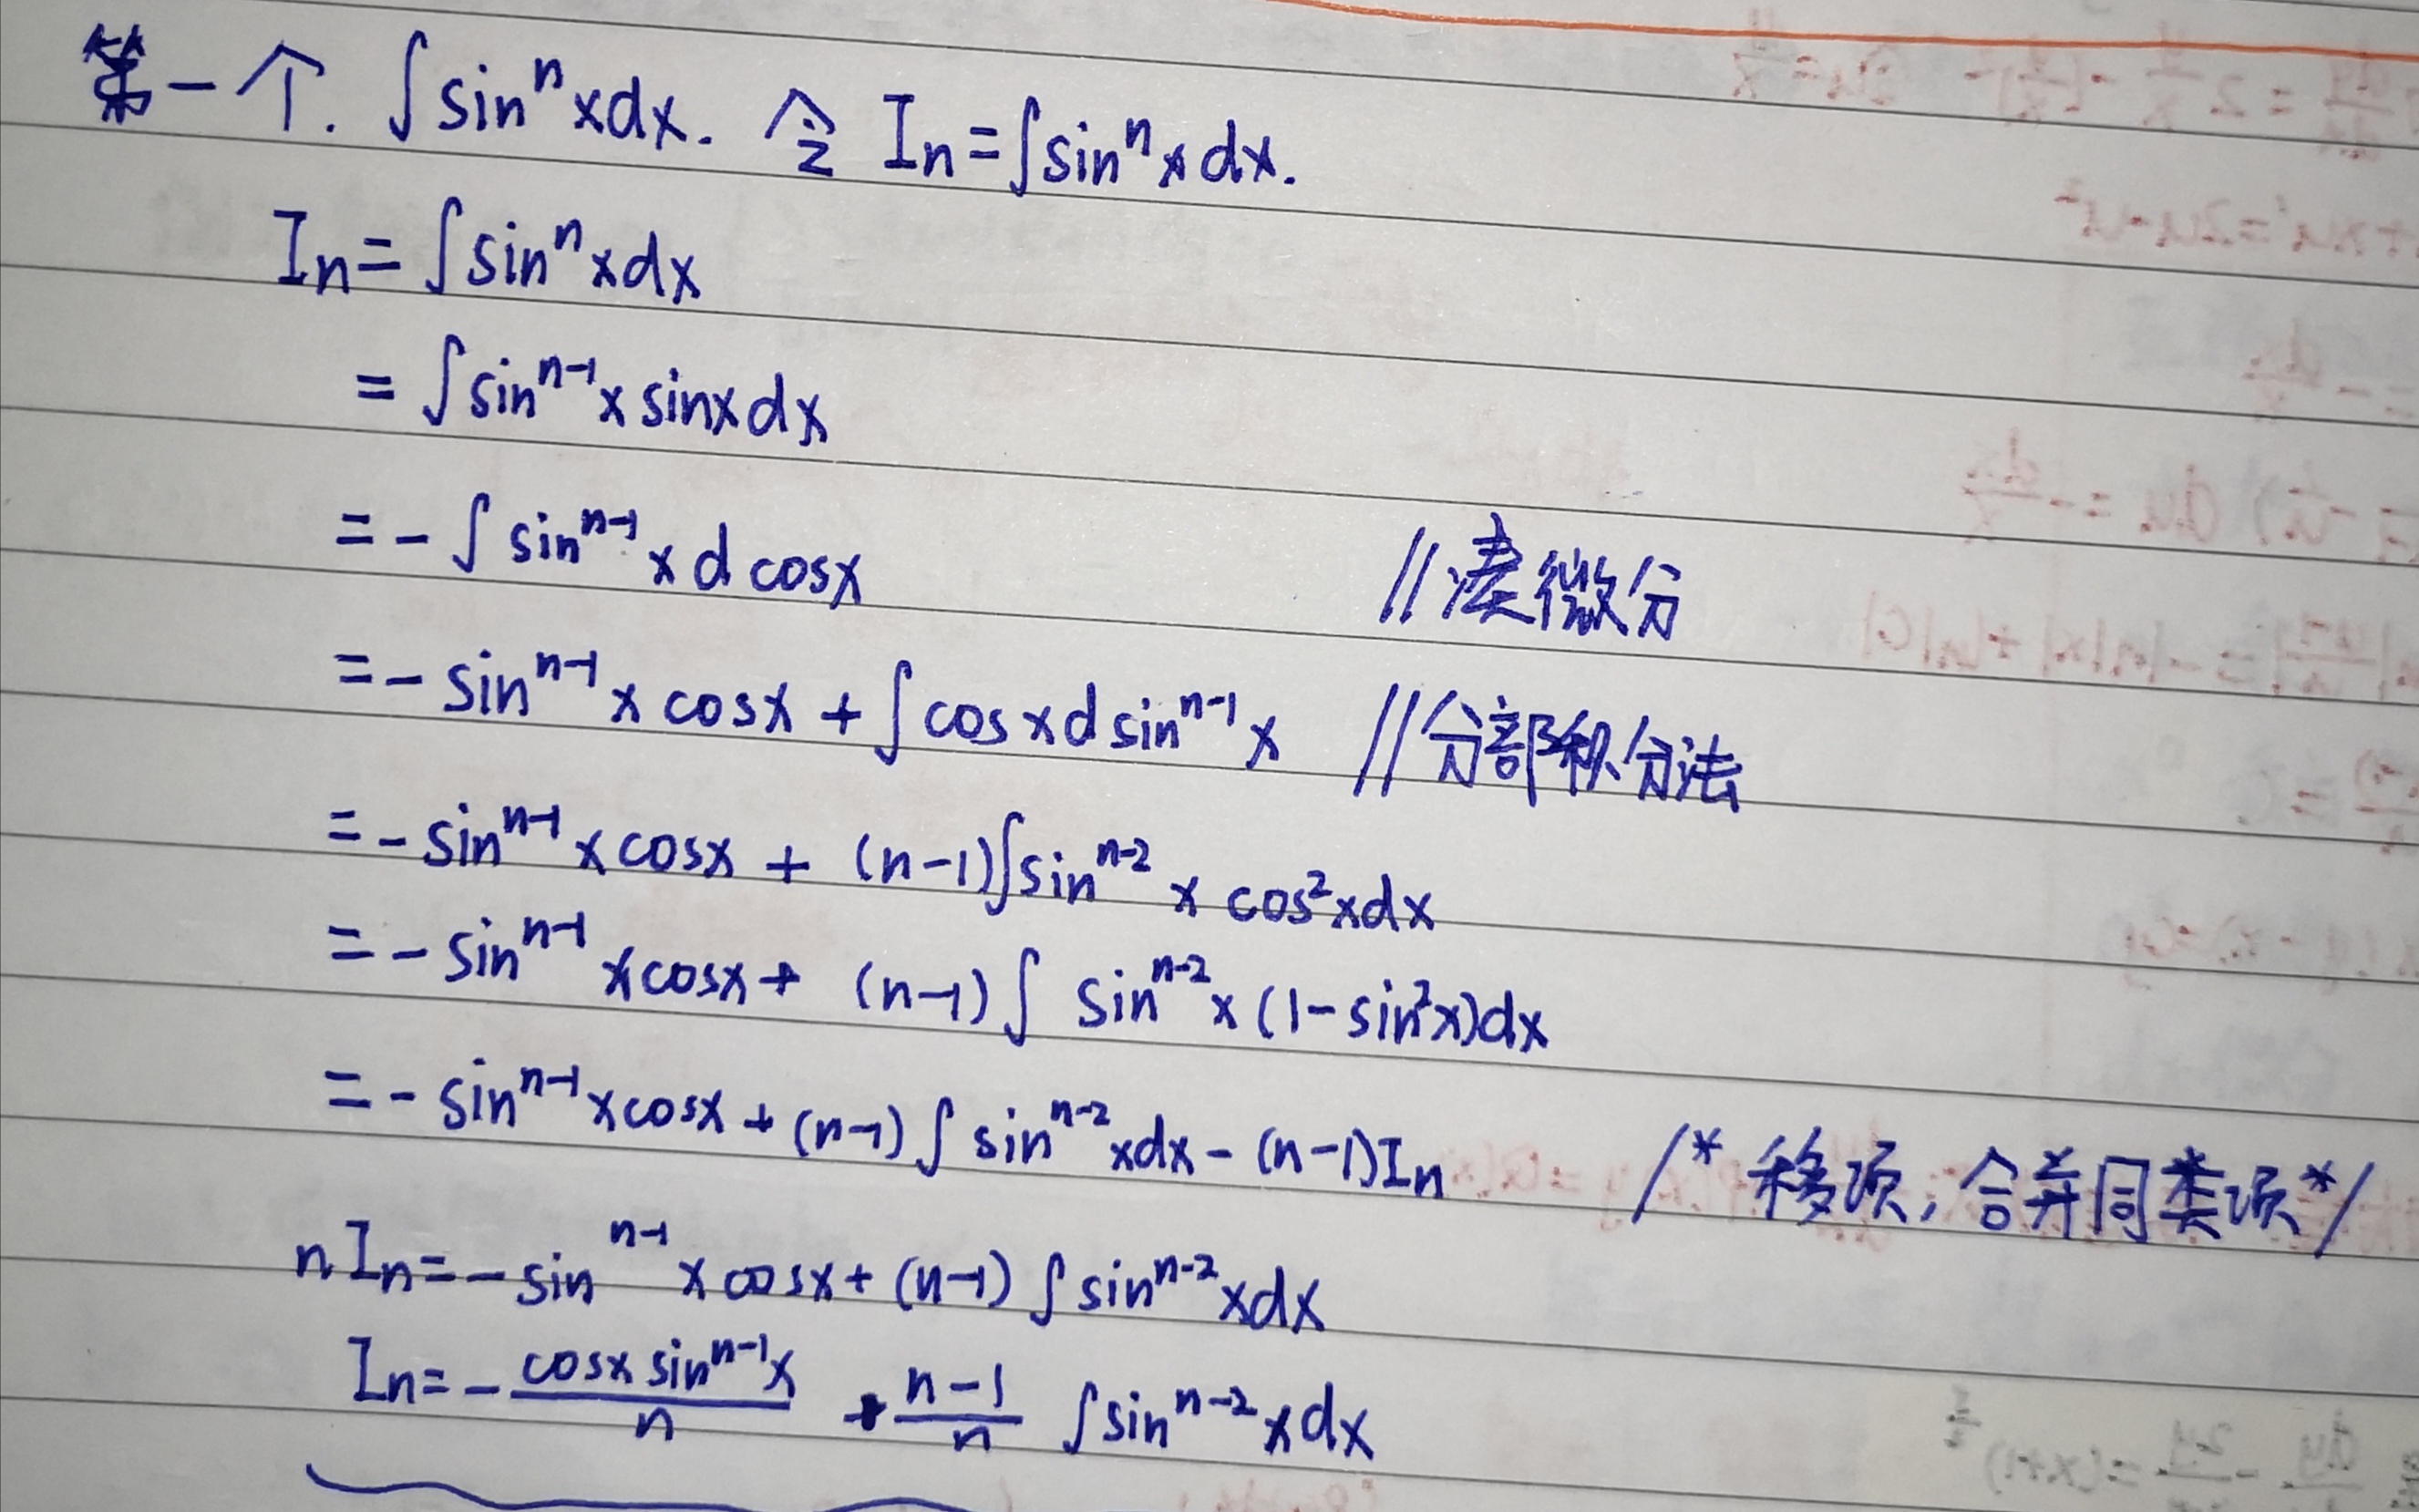 第一个. ∫sinⁿxdx. 令 Iₙ=∫sinⁿxdx.
Iₙ=∫sinⁿxdx
=∫sinⁿ⁻¹x sinxdx
=-∫sinⁿ⁻¹x d cosx //凑微分
=-sinⁿ⁻¹x cosx+∫cosxdsinⁿ⁻¹x //分部积分法
=-sinⁿ⁻¹x cosx+(n-1)∫sinⁿ⁻²x cos²xdx
=-sinⁿ⁻¹x cosx+(n-1)∫sinⁿ⁻²x(1-sin²x)dx
=-sinⁿ⁻¹xcosx+(n-1)∫sinⁿ⁻²xdx-(n-1)Iₙ /*移项,合并同类项*/
nIₙ=-sinⁿ⁻¹xcosx+(n-1)∫sinⁿ⁻²xdx
Iₙ=-\frac{cosx sinⁿ⁻¹x}{n}+\frac{n-1}{n}∫sinⁿ⁻²xdx